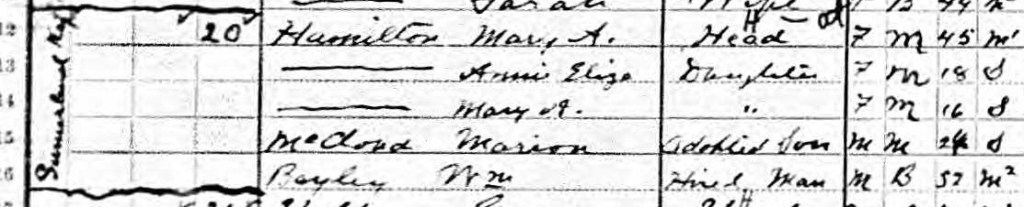 Sarah Wife F B 44
12 20 Hamilton Mary A. Head F M 45 M1
13 Annie Eliza Daughter F M 18 S
14 Mary A. " F M 16 S
15 McCloud Marion adopted Son M M 24 S
16 Bayley Wm Hired Man M B 52 M2